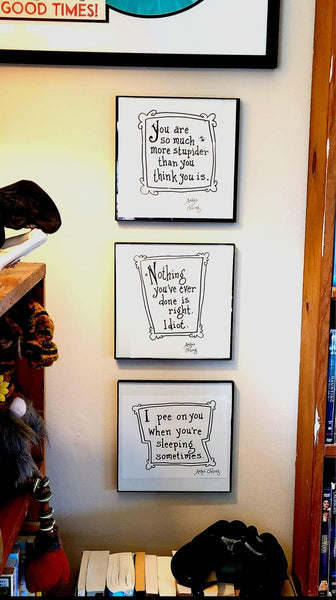 GOOD TIMES!
You are
so much
more stupider
than you
think you is.
Nothing
you've ever
done is
right.
Idiot.
I pee on you
when you're
sleeping
sometimes.